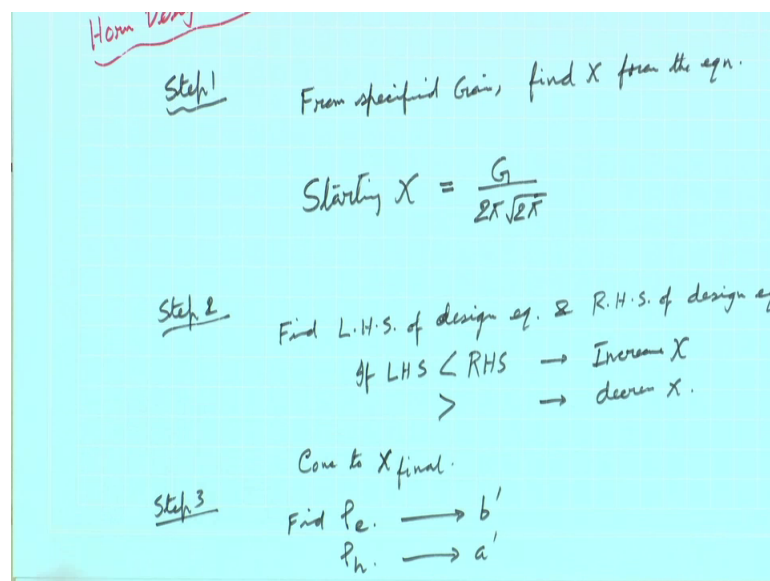 Horn Desig
Step 1 From specified Gain, find X from the eqn.
Starting X = G / 2π√2π
Step 2 Find L.H.S. of design eq. & R.H.S. of design eq
If LHS < RHS → Increase X
> → decrea X.
Come to X final.
Step 3 Find ρe. → b'
ρh. → a'